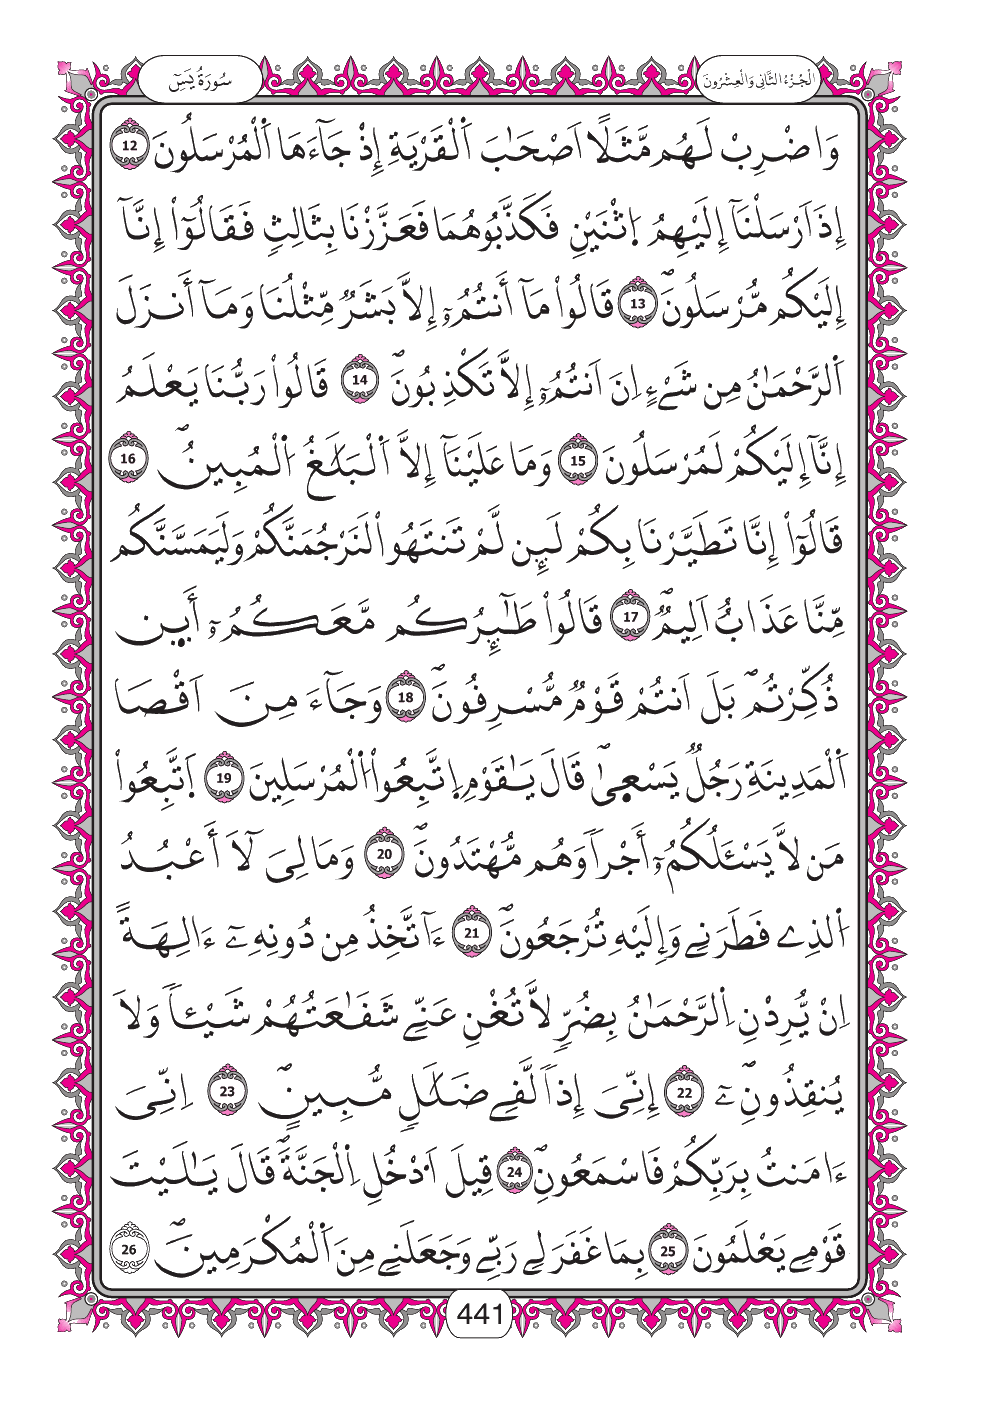 الْجُزْءُ الثَّانِي وَالْعِشْرُونَ
سُورَةُ يَسِٓ
وَاضْرِبْ لَهُم مَّثَلًا اَصْحَٰبَ اَ۬لْقَرْيَةِ إِذْ جَآءَهَا اَ۬لْمُرْسَلُونَ 12
إِذَ اَرْسَلْنَآ إِلَيْهِمُ اُ۪ثْنَيْنِ فَكَذَّبُوهُمَا فَعَزَّزْنَا بِثَالِثٖ فَقَالُوٓاْ إِنَّآ
إِلَيْكُم مُّرْسَلُونَۖ 13 قَالُواْ مَآ أَنتُمُۥٓ إِلَّا بَشَرٞ مِّثْلُنَا وَمَآ أَنزَلَ
اَ۬لرَّحْمَٰنُ مِن شَےْءٍ اِنَ اَنتُمُۥٓ إِلَّا تَكْذِبُونَۖ 14 قَالُواْ رَبُّنَا يَعْلَمُ
إِنَّآ إِلَيْكُمْ لَمُرْسَلُونَ 15 وَمَا عَلَيْنَآ إِلَّا اَ۬لْبَلَٰغُ اُ۬لْمُبِينُۖ 16
قَالُوٓاْ إِنَّا تَطَيَّرْنَا بِكُمْ لَئِن لَّمْ تَنتَهُواْ لَنَرْجُمَنَّكُمْ وَلَيَمَسَّنَّكُم
مِّنَّا عَذَابٌ اَلِيمٞۖ 17 قَالُواْ طَٰٓئِرُكُم مَّعَكُمُۥٓ أَيِن
ذُكِّرْتُمۖ بَلَ اَنتُمْ قَوْمٞ مُّسْرِفُونَۖ 18 وَجَآءَ مِنَ اَقْصَا
اَ۬لْمَدِينَةِ رَجُلٞ يَسْعٜىٰۖ قَالَ يَٰقَوْمِ اِ۪تَّبِعُواْ اُ۬لْمُرْسَلِينَ 19 اَ۪تَّبِعُواْ
مَن لَّا يَسْـَٔلُكُمُۥٓ أَجْراٗ وَهُم مُّهْتَدُونَۖ 20 وَمَا لِىَ لَآ أَعْبُدُ
اُ۬لذِے فَطَرَنِے وَإِلَيْهِ تُرْجَعُونَۖ 21 ءَآتَّخِذُ مِن دُونِهِۦٓ ءَالِهَةً
اِنْ يُّرِدْنِ اِ۬لرَّحْمَٰنُ بِضُرّٖ لَّا تُغْنِ عَنِّے شَفَٰعَتُهُمْ شَيْـٔاٗ وَلَا
يُنقِذُونِۖۦٓ 22 إِنِّىَ إِذاٗ لَّفِے ضَلَٰلٖ مُّبِينٍۖ 23 اِنِّىَ
ءَامَنتُ بِرَبِّكُمْ فَاسْمَعُونِۖ 24 قِيلَ اَ۟دْخُلِ اِ۬لْجَنَّةَۖ قَالَ يَٰلَيْتَ
قَوْمِے يَعْلَمُونَ 25 بِمَا غَفَرَ لِے رَبِّے وَجَعَلَنِے مِنَ اَ۬لْمُكْرَمِينَۖ 26
441